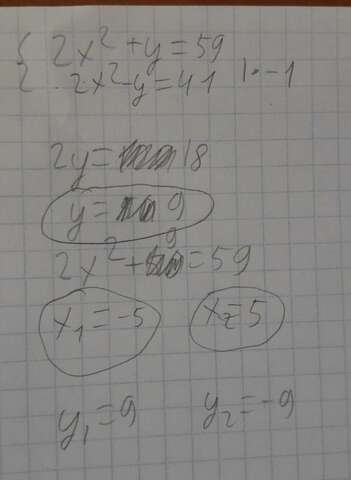 { 2x²+y=59
2x²-y=41 |·-1
2y= 18
y= 9
2x²+ 9 =59
x₁=-5 x₂=5
y₁=9 y₂=-9